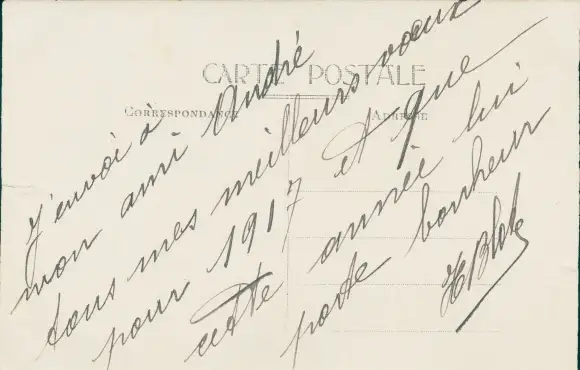 CARTE POSTALE
CORRESPONDANCE
ADRESSE
J'envoi à
mon ami André
tous mes meilleurs voeux
pour 1917 et que
cette année lui
porte bonheur